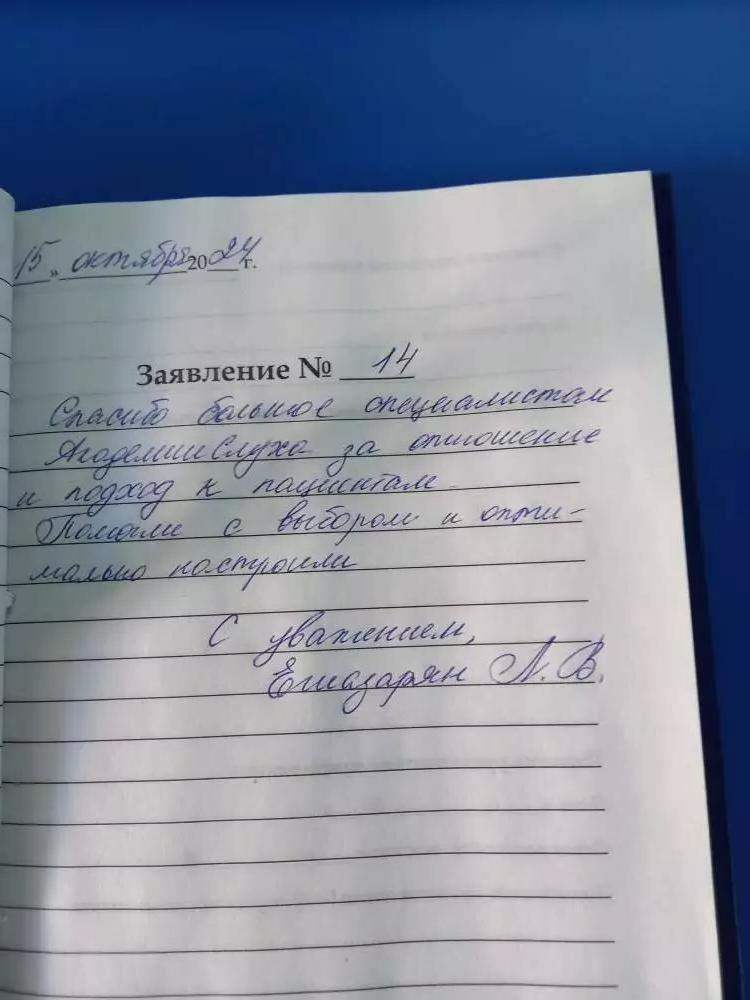 15 » октября 2024 г.
Заявление № 14
Спасибо большое специалистам
Академии Слуха за отношение
и подход к пациентам.
Помогли с выбором и опти-
мально настроили
С уважением,
Л. В.